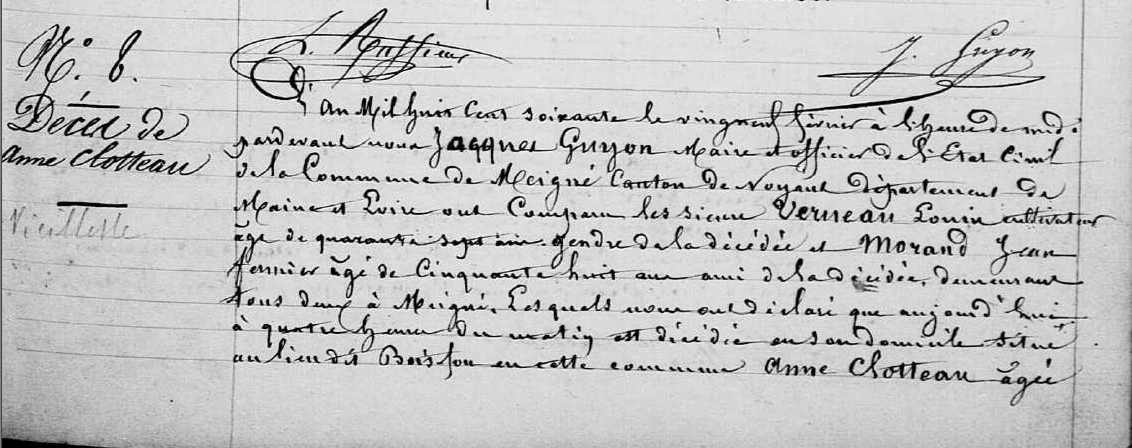 N.° 8.
Décès de
Anne Clotteau
Vieillesse
J. Guyon
L'An Mil huit Cent soixante le vingt neuf février à l'heure de midi
pardevant nous Jacques Guyon Maire et officier de l'Etat Civil
de la Commune de Meigné Canton de Noyant département de
Maine et Loire ont Comparu les sieurs Verneau Louis cultivateur
âgé de quarante sept ans gendre de la décédée et Morand Jean
fermier âgé de Cinquante huit ans ami de la décédée, demeurant
tous deux à Meigné, Lesquels nous ont déclaré que aujourd'hui
à quatre heures du matin est décédée en son domicile situé
au lieu dit en cette commune Anne Clotteau âgée